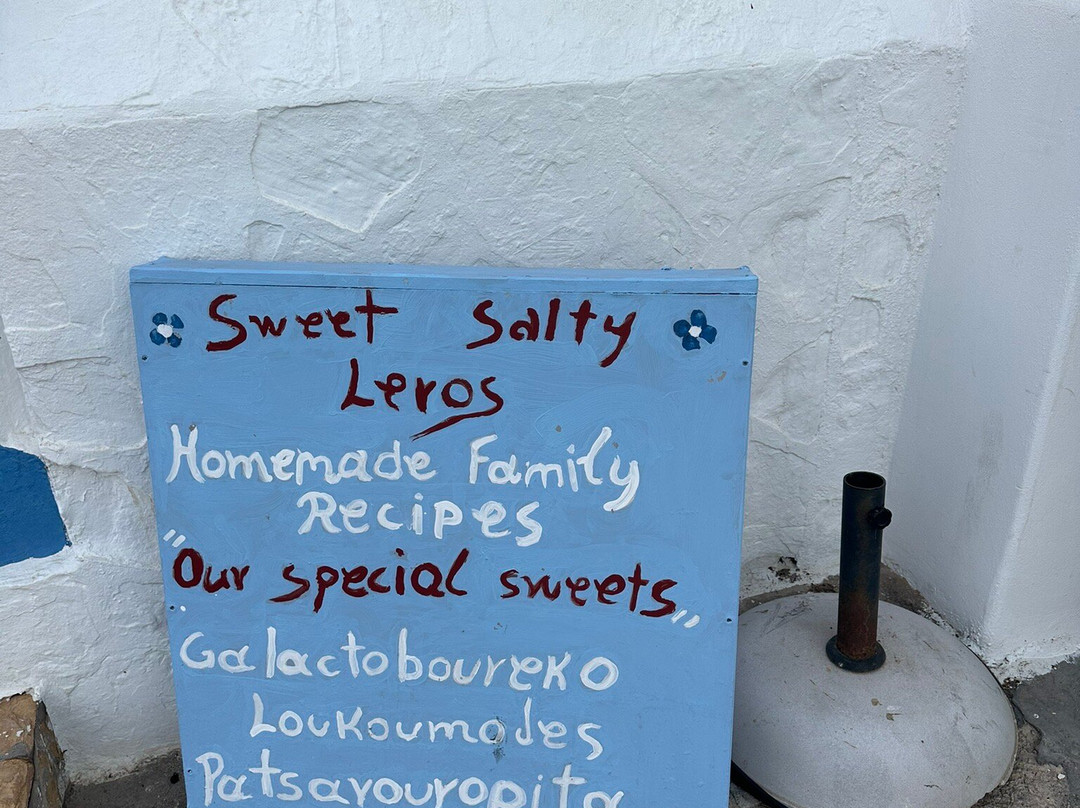 Sweet Salty
Leros
Homemade Family
Recipes
"Our special sweets"
Galactoboureko
Loukoumades
Patsavouropita